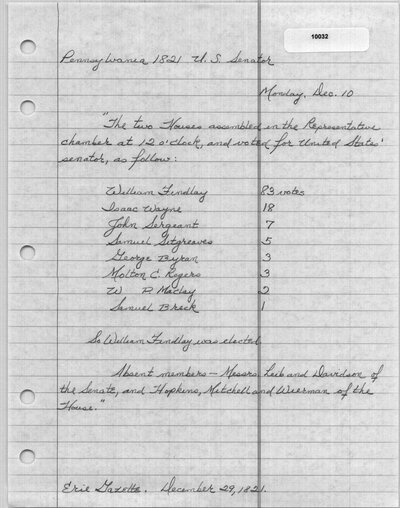 10032
Pennsylvania 1821 U.S. Senator
Monday, Dec. 10
"The two Houses assembled in the Representative
chamber at 12 o'clock, and voted for United States'
senator, as follow:
William Findlay 83 votes
Isaac Wayne 18
John Sergeant 7
Samuel Sitgreaves 5
George Byran 3
Molton C. Rogers 3
W P. Maclay 2
Samuel Breck 1
So William Findlay was elected
Absent members — Messrs. Leib and Davidson of
the Senate, and Hopkins, Mitchell and Wierman of the
House."
Erie Gazette. December 29, 1821.